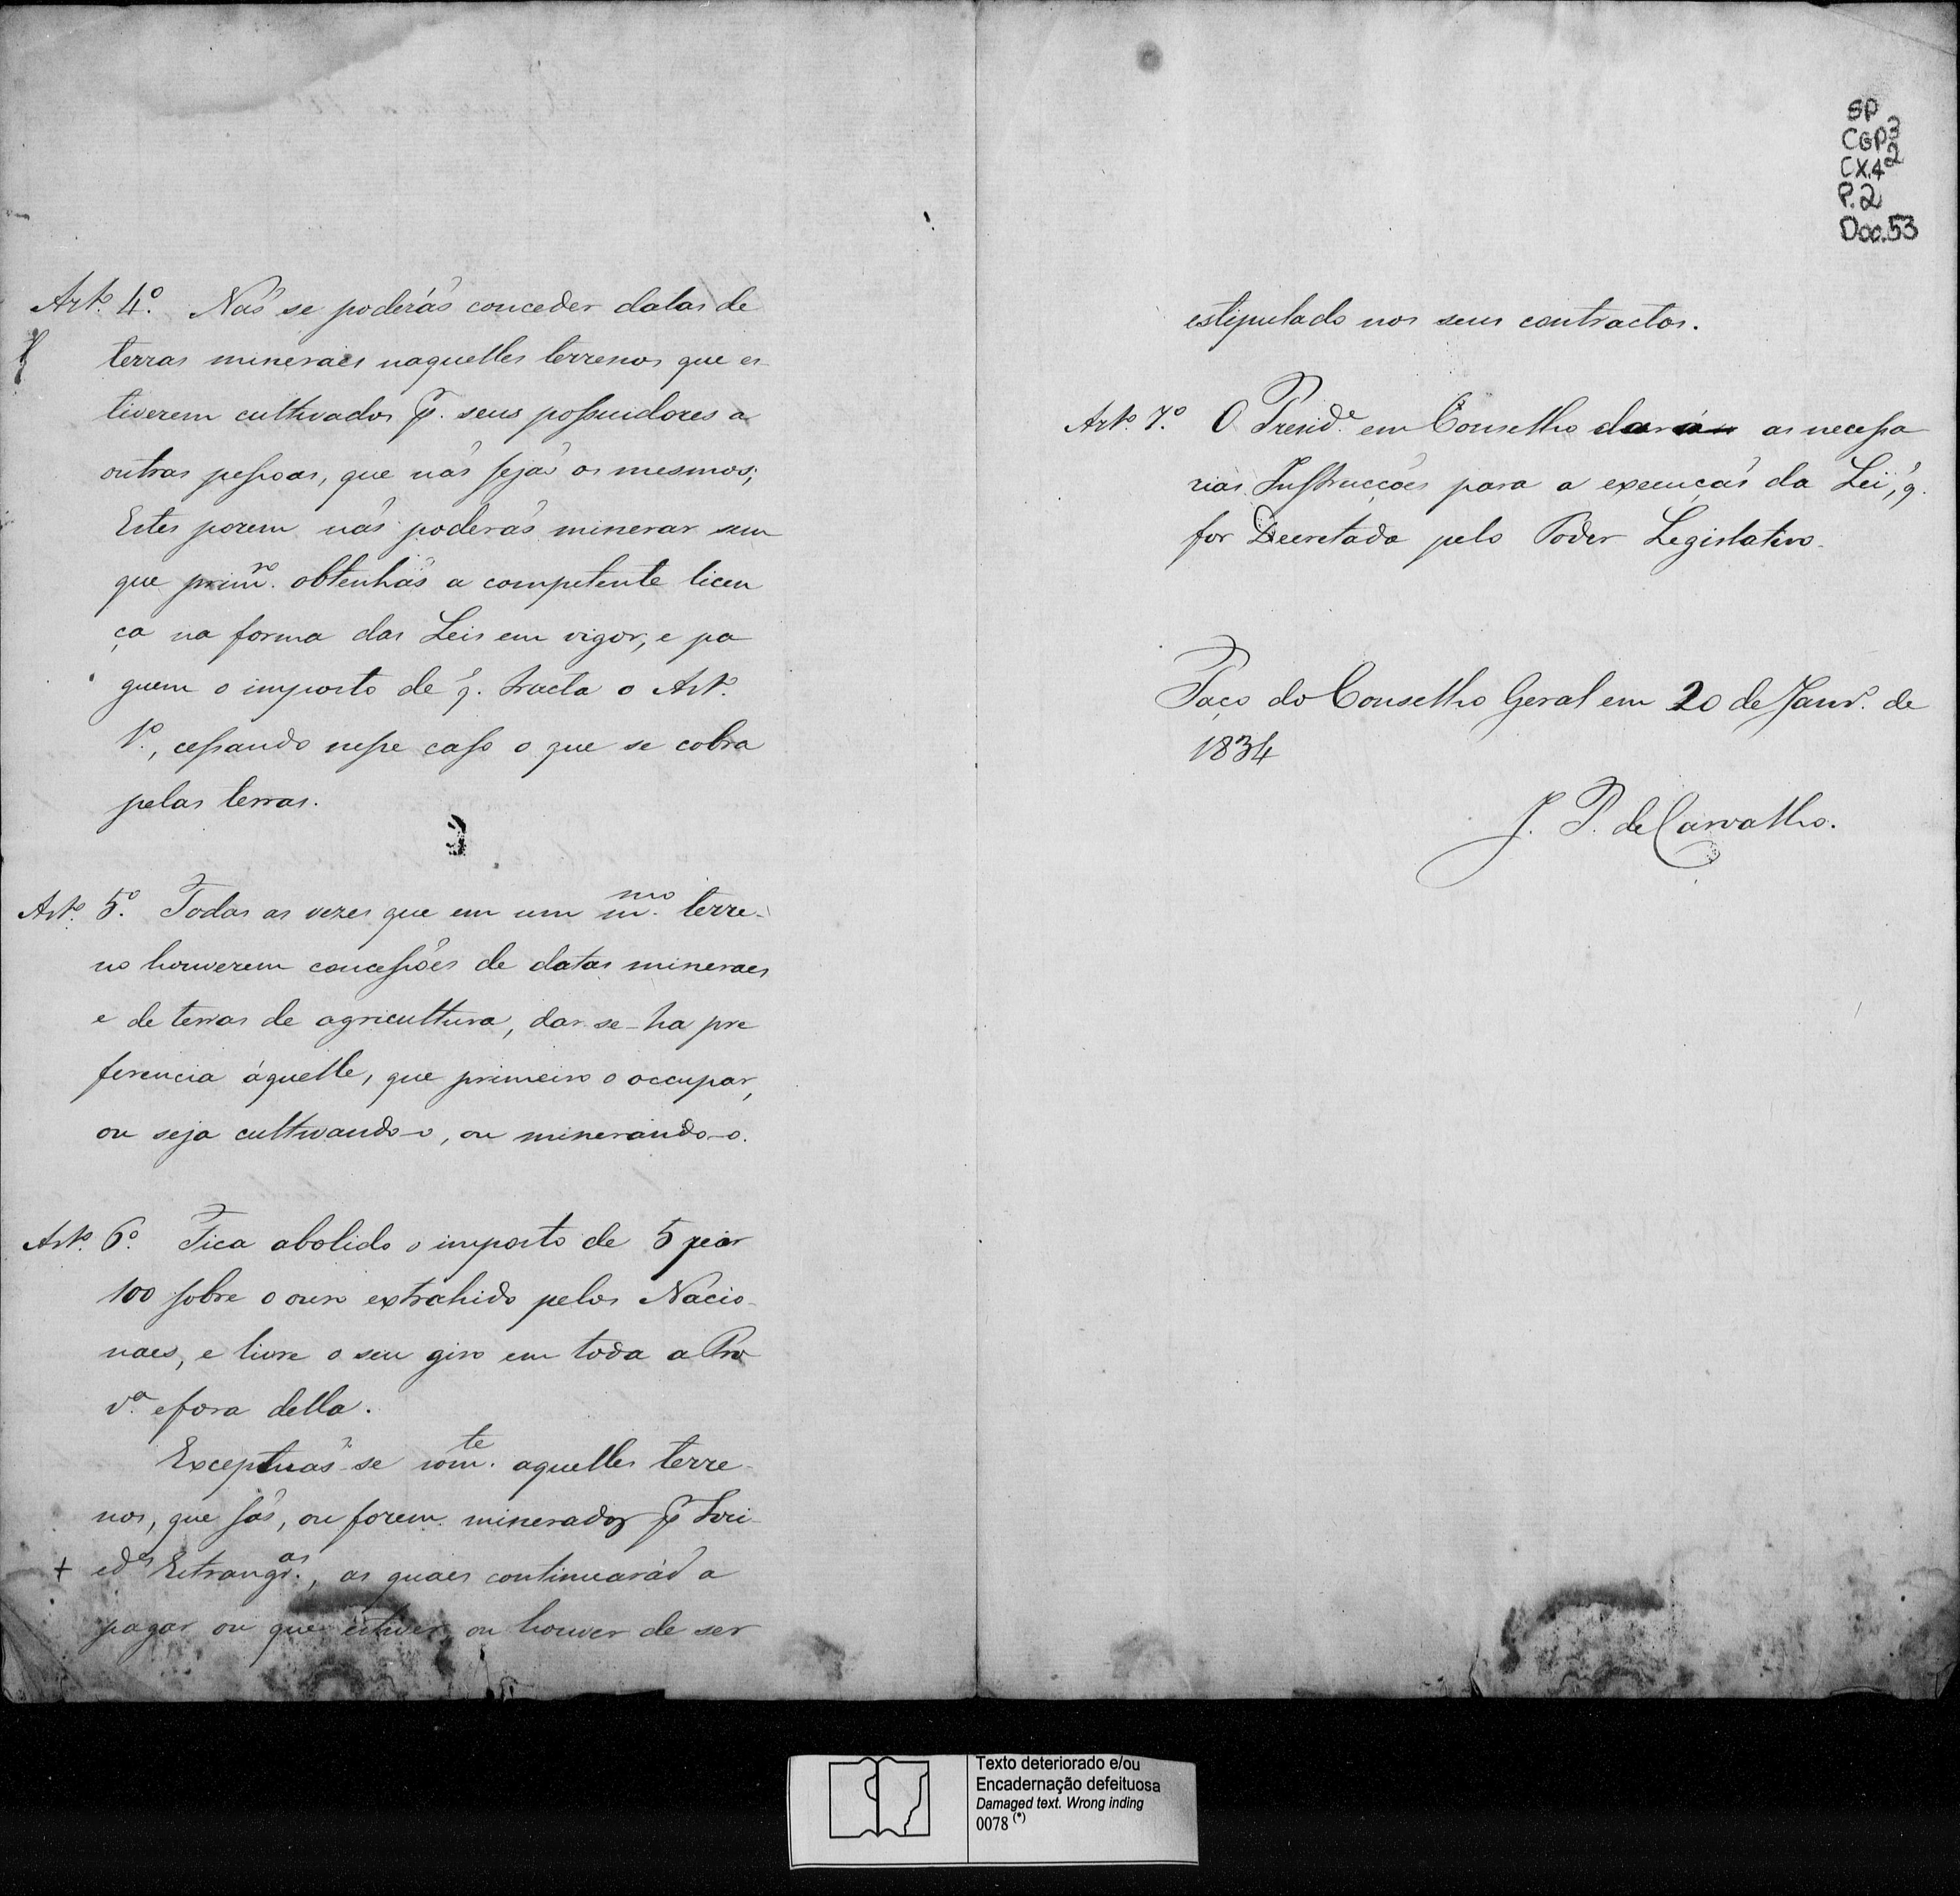 Art.º 4.º Não se poderão conceder datas de
terras mineraes naquelles terrenos que es-
tiverem cultivados p.r seus possuidores a
outras pessoas, que não sejão os mesmos;
Estes porem não poderão minerar sem
que prim.ro obtenhão a competente licen
ça na forma das Leis em vigor, e pa
guem o imposto de q. tracta o Art.º
1.º, cessando nesse caso o que se cobra
pelas terras.
Art.º 5.º Todas as vezes que em um m.mo terre-
no houverem concessões de datas mineraes
e de terras de agricultura, dar-se-ha pre
ferencia áquelle, que primeiro o occupar,
ou seja cultivando-o, ou minerando-o.
Art.º 6.º Fica abolido o imposto de 5 por
100 sobre o ouro extrahido pelos Nacio-
naes, e livre o seu giro em toda a Pro
v.a e fora della.
Exceptuão-se som.te aquelles terre-
nos, que são, ou forem minerados p.r Soci-
+ ed.es Estrangr.as, as quaes continuarão a
pagar ou que estiver, ou houver de ser
SP
CGP3
CX.42
P.2
Doc.53
estipulado nos seus contractos.
Art.º 7.º O Presid.e em Conselho dará as necessa
rias Instrucções para a execução da Lei, q.
for Decretada pelo Poder Legislativo.
Paço do Conselho Geral em 20 de Janr.º de
1834
J. P. de Carvalho.
Texto deteriorado e/ou
Encadernação defeituosa
Damaged text. Wrong inding
0078 (*)